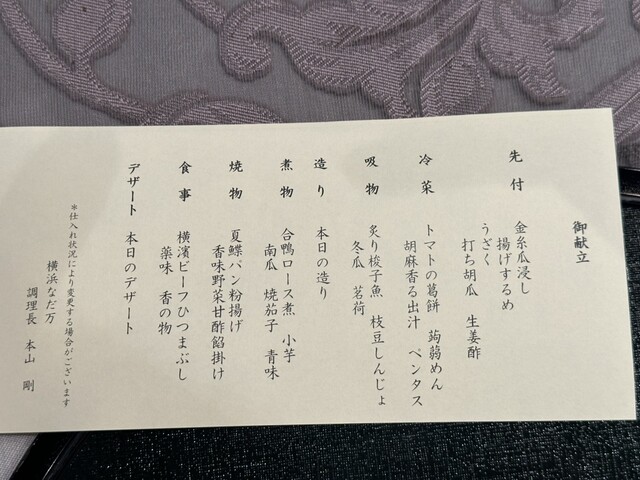 御献立
先付
金糸瓜浸し
揚げするめ
うざく
打ち胡瓜 生姜酢
冷菜
トマトの葛餅 蒟蒻めん
胡麻香る出汁 ペンタス
吸物
炙り梭子魚 枝豆しんじょ
冬瓜 茗荷
造り 本日の造り
煮物
合鴨ロース煮 小芋
南瓜 焼茄子 青味
焼物
夏鰈パン粉揚げ
香味野菜甘酢餡掛け
食事
横濱ビーフひつまぶし
薬味 香の物
デザート 本日のデザート
*仕入れ状況により変更する場合がございます
横浜なだ万
調理長 本山 剛